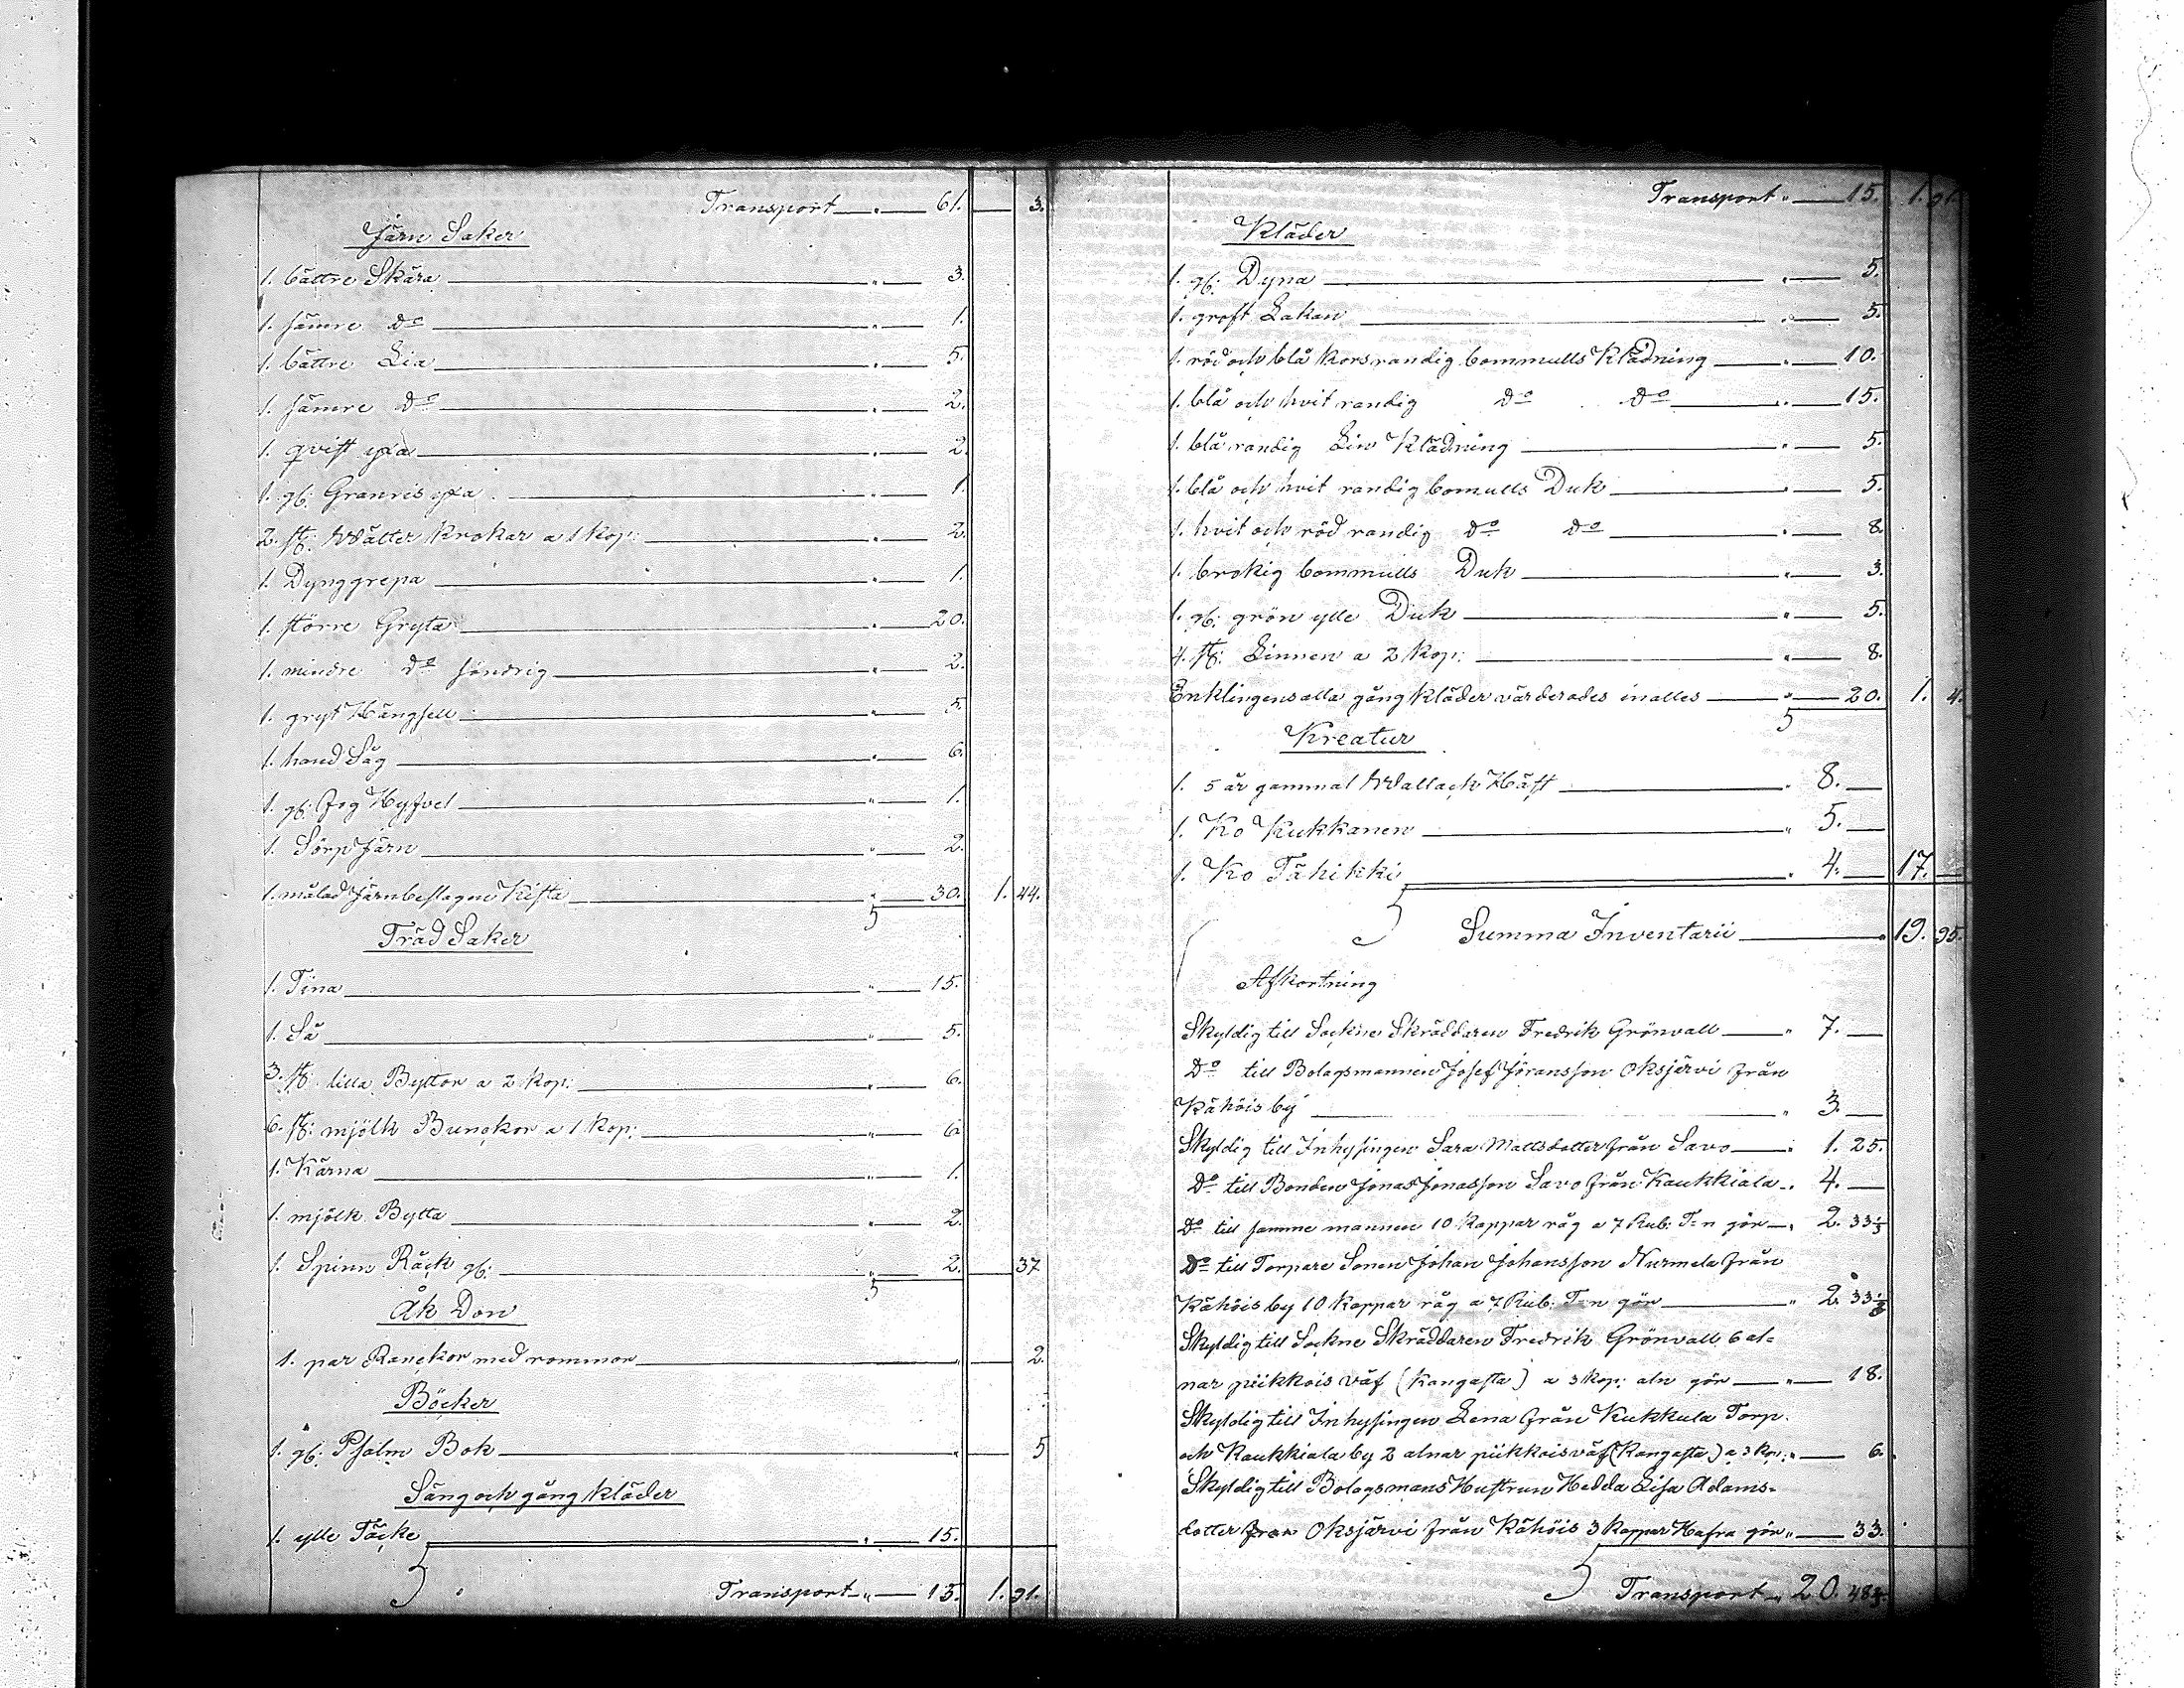 Transport " 61. 3.
Järn Saker
1. bättre Skära " 3.
1. sämre do " 1.
1. bättre Lia " 5.
1. sämre do " 2.
1. qvist yxa " 2.
1. gl: Granris yxa " 1.
2. st: Wälter Krokar a 1 kop: " 2.
1. Dynggrepa " 1.
1. större Gryta " 20.
1. mindre do söndrig " 2.
1. gryt Hängsell " 5.
1. hand Såg " 6.
1. gl: Fog Hyfvel " 1.
1. Sörp Järn " 2.
1. målad Järnbeslagen Kista " 30. 1. 44.
Träd Saker
1. Tina " 15.
1. Så " 5.
3. st: lilla Byttor a 2 kop: " 6.
6. st: mjölk Bunckor a 1 kop: " 6
1. Kärna " 1.
1. mjölk Bytta " 2.
1. Spinn Råck gl: " 2. 37
Åk Don
1. par Ranckor med rommor " 2.
Böcker
1. gl: Psalm Bok " 5
Säng och gång kläder
1. ylle Täcke " 15.
Transport " 15. 1. 91.
Transport " 15. 1. 91.
Kläder
1. gl: Dyna " 5.
1. groft Lakan " 5.
1. röd och blå korsrandig bommulls Klädning " 10.
1. blå och hvit randig do do " 15.
1. blå randig Lin Klädning " 5.
1. blå och hvit randig bomulls Duk " 5.
1. hvit och röd randig do do " 8.
1. brokig bommulls Duk " 3.
1. gl: grön ylle Duk " 5.
4. st: Linnen a 2 kop: " 8.
Enklingens alla gång kläder värderades inalles " 20. 1. 4.
Kreatur
1. 5 år gammal Wallack Häst " 8.
1. Ko Kukkanen " 5.
1. Ko Tähikki " 4. 17.
Summa Inventarii " 19. 95.
Afkortning
Skyldig till Sockne Skräddaren Fredrik Grönvall " 7.
Do till Bolagsmannen Josef Jöransson Oksjärvi från
Kähöis by " 3.
Skyldig till Inhysingen Sara Mattsdotter från Savo " 1. 25.
Do till Bonden Jonas Jonasson Savo från Kaukkiala " 4.
Do till samme mannen 10 kappar råg a 7 Rub: T=n gör " 2. 33 1/3
Do till Torpare Sonen Johan Johansson Nurmela från
Kähöis by 10 kappar råg a 7 Rub: T=n gör " 2. 33 1/3
Skyldig till Sockne Skräddaren Fredrik Grönvall 6 al=
nar piikkois väf (Kangasta) a 3 kop: aln gör " 18.
Skyldig till Inhysingen Lena från Kukkula Torp
och Kaukkiala by 2 alnar piikkois väf (Kangasta) a 3 kop: " 6.
Skyldig till Bolagsmans Hustrun Hedda Lisa Adams=
dotter från Oksjärvi från Kähöis 3 kappar Hafra gör " 33.
Transport " 20.